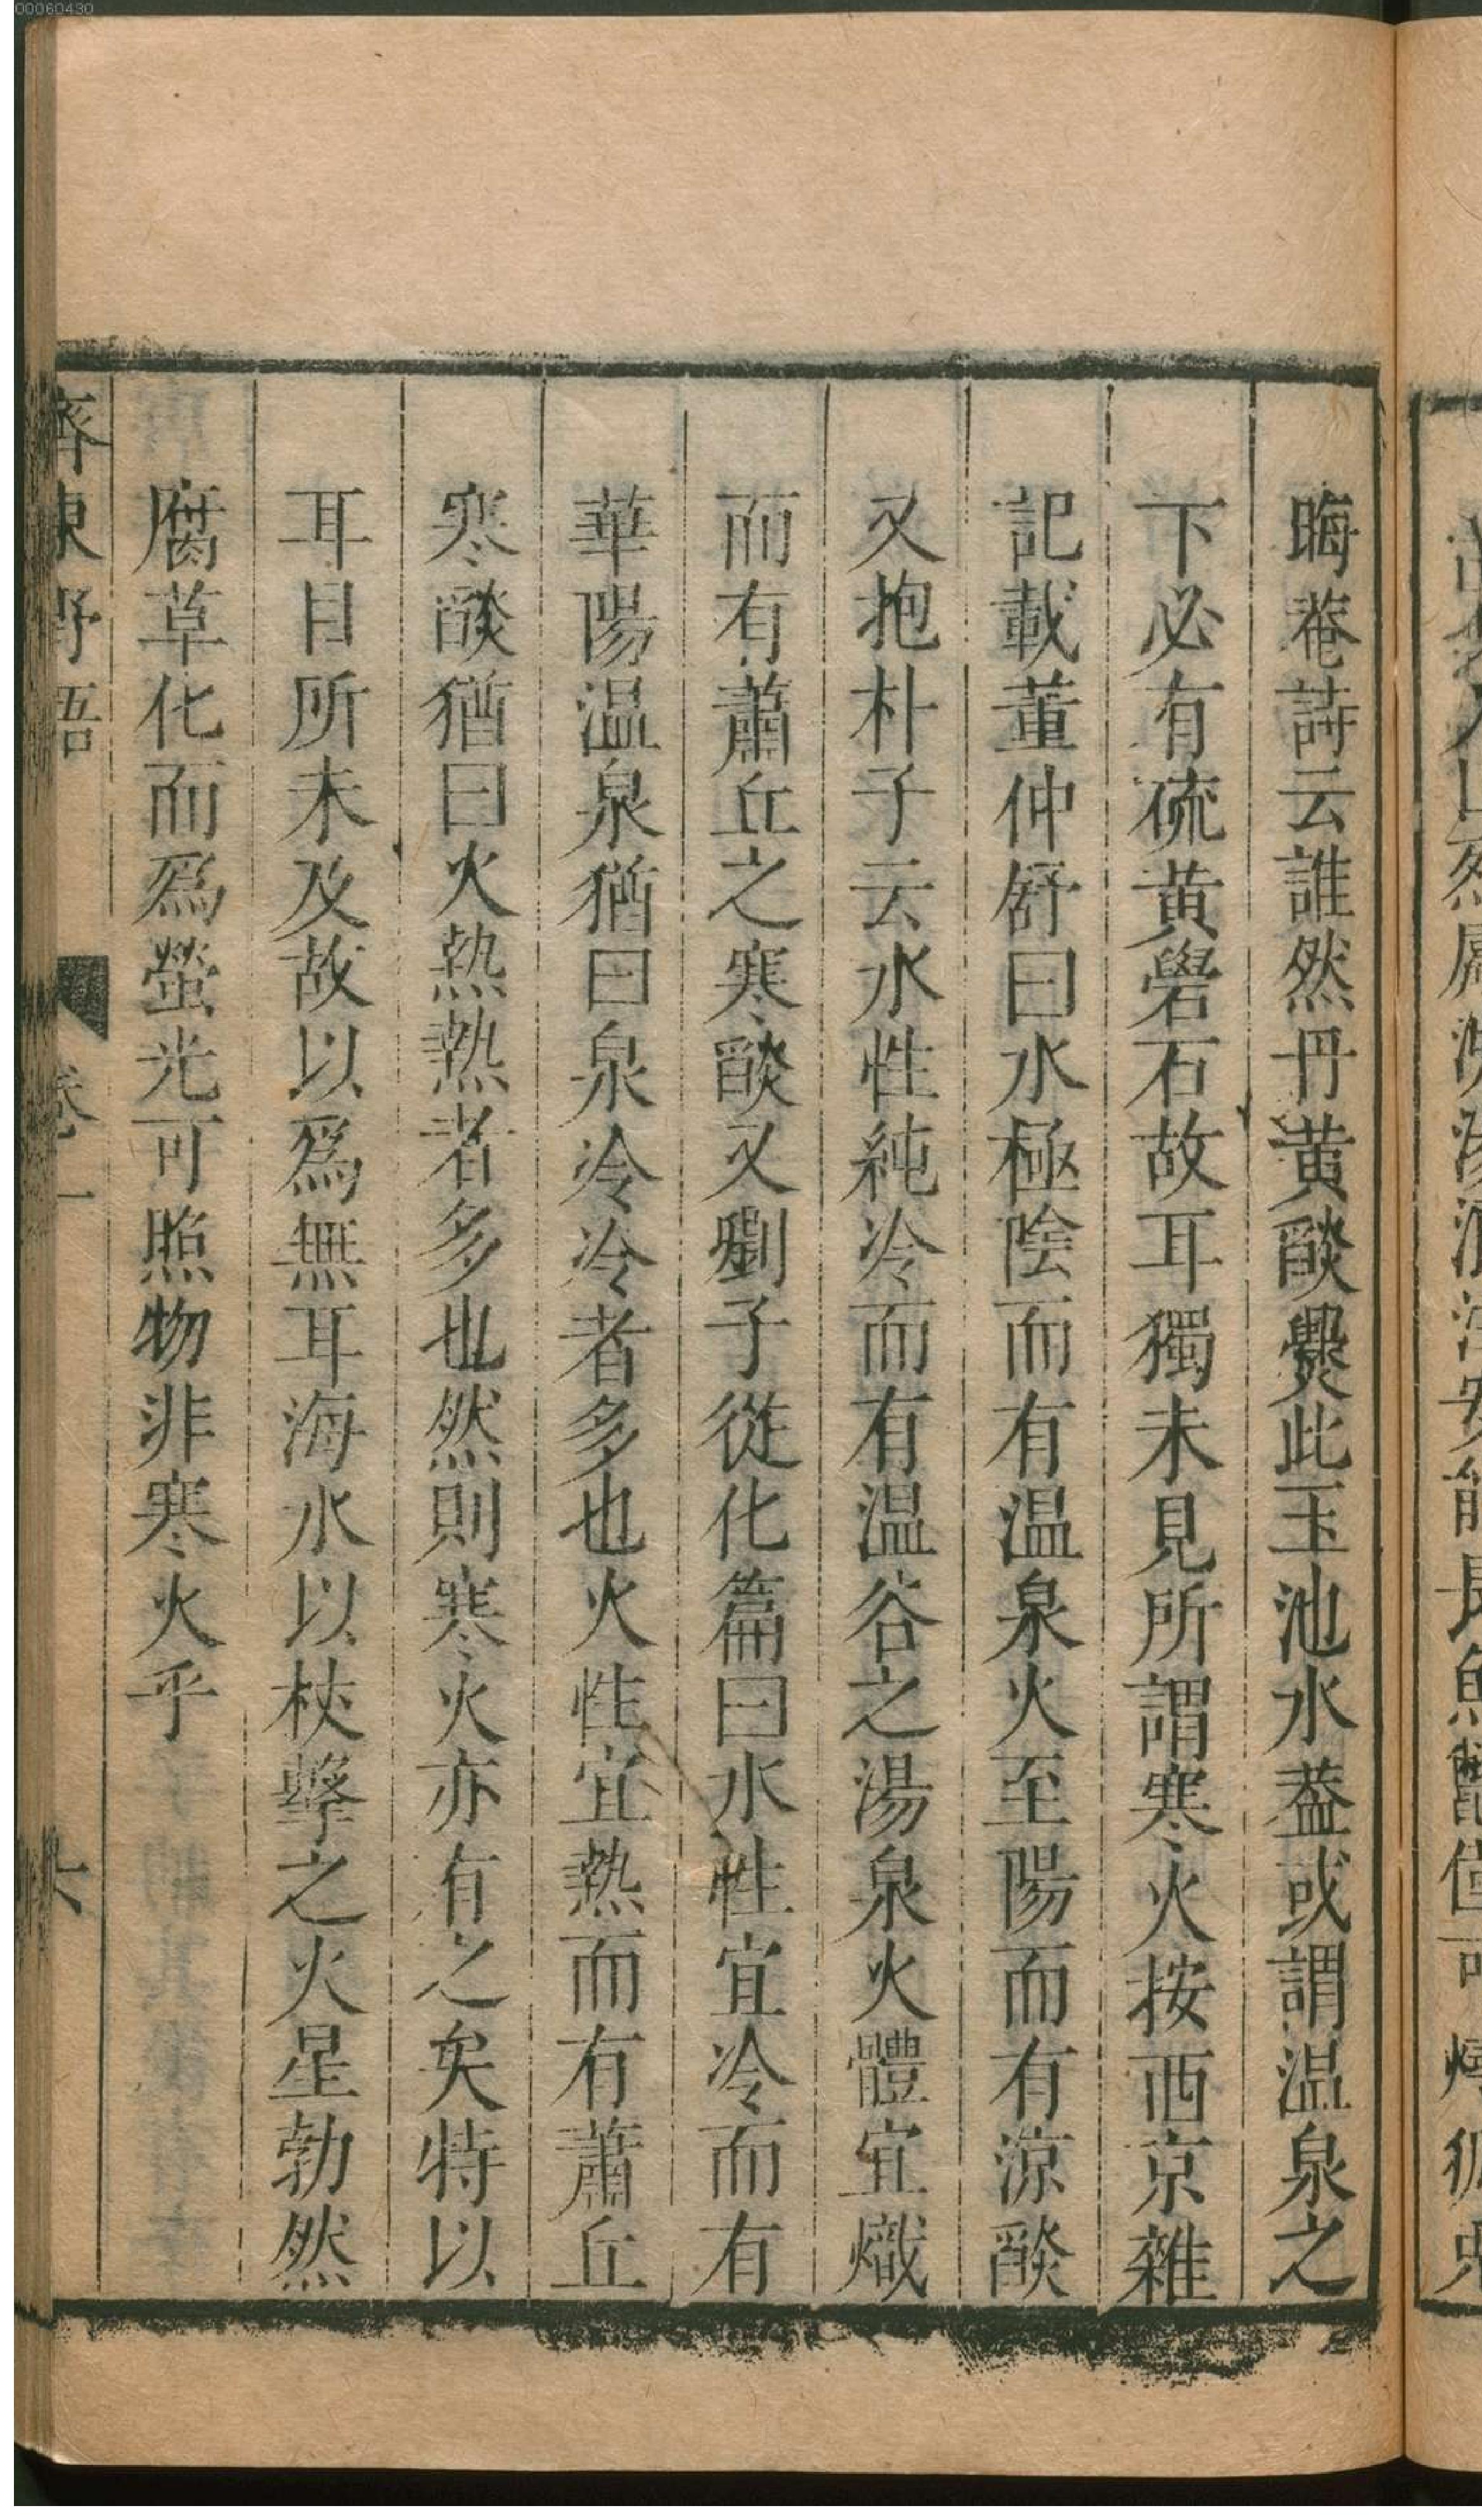 晦菴詩云誰然丹黄燄爨此玉池水葢或謂温泉之
下必有硫黄礜石故耳獨未見所謂寒火按西京雜
記載董仲舒曰水極陰而有温泉火至陽而有涼燄
又抱朴子云水性純冷而有温谷之湯泉火體宜熾
而有蕭丘之寒燄又劉子從化篇曰水性宜冷而有
華陽温泉猶曰泉冷冷者多也火性宜熱而有蕭丘
寒燄猶曰火熱熱者多也然則寒火亦有之矣特以
耳目所未及故以爲無耳海水以杖擊之火星勃然
腐草化而爲螢光可照物非寒火乎
齊東野語 卷一 六
00060430